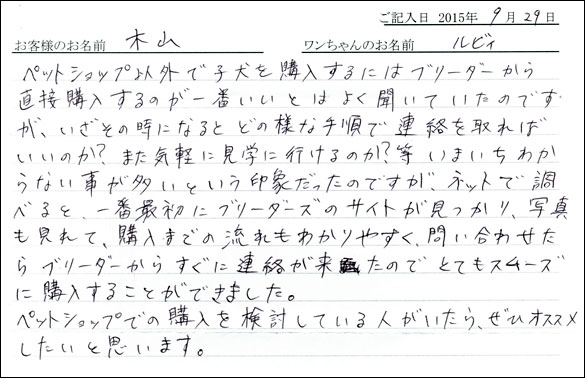 ご記入日 2015年 9月 29日
お客様のお名前 木山 ワンちゃんのお名前 ルビィ
ペットショップ以外で子犬を購入するにはブリーダーから
直接購入するのが一番いいとはよく聞いていたのです
が、いざその時になるとどの様な手順で連絡を取れば
いいのか?また気軽に見学に行けるのか?等いまいちわか
らない事が多いという印象だったのですが、ネットで調
べると、一番最初にブリーダーズのサイトが見つかり、写真
も見れて、購入までの流れもわかりやすく、問い合わせた
らブリーダーからすぐに連絡が来たのでとてもスムーズ
に購入することができました。
ペットショップでの購入を検討している人がいたら、ぜひオススメ
したいと思います。